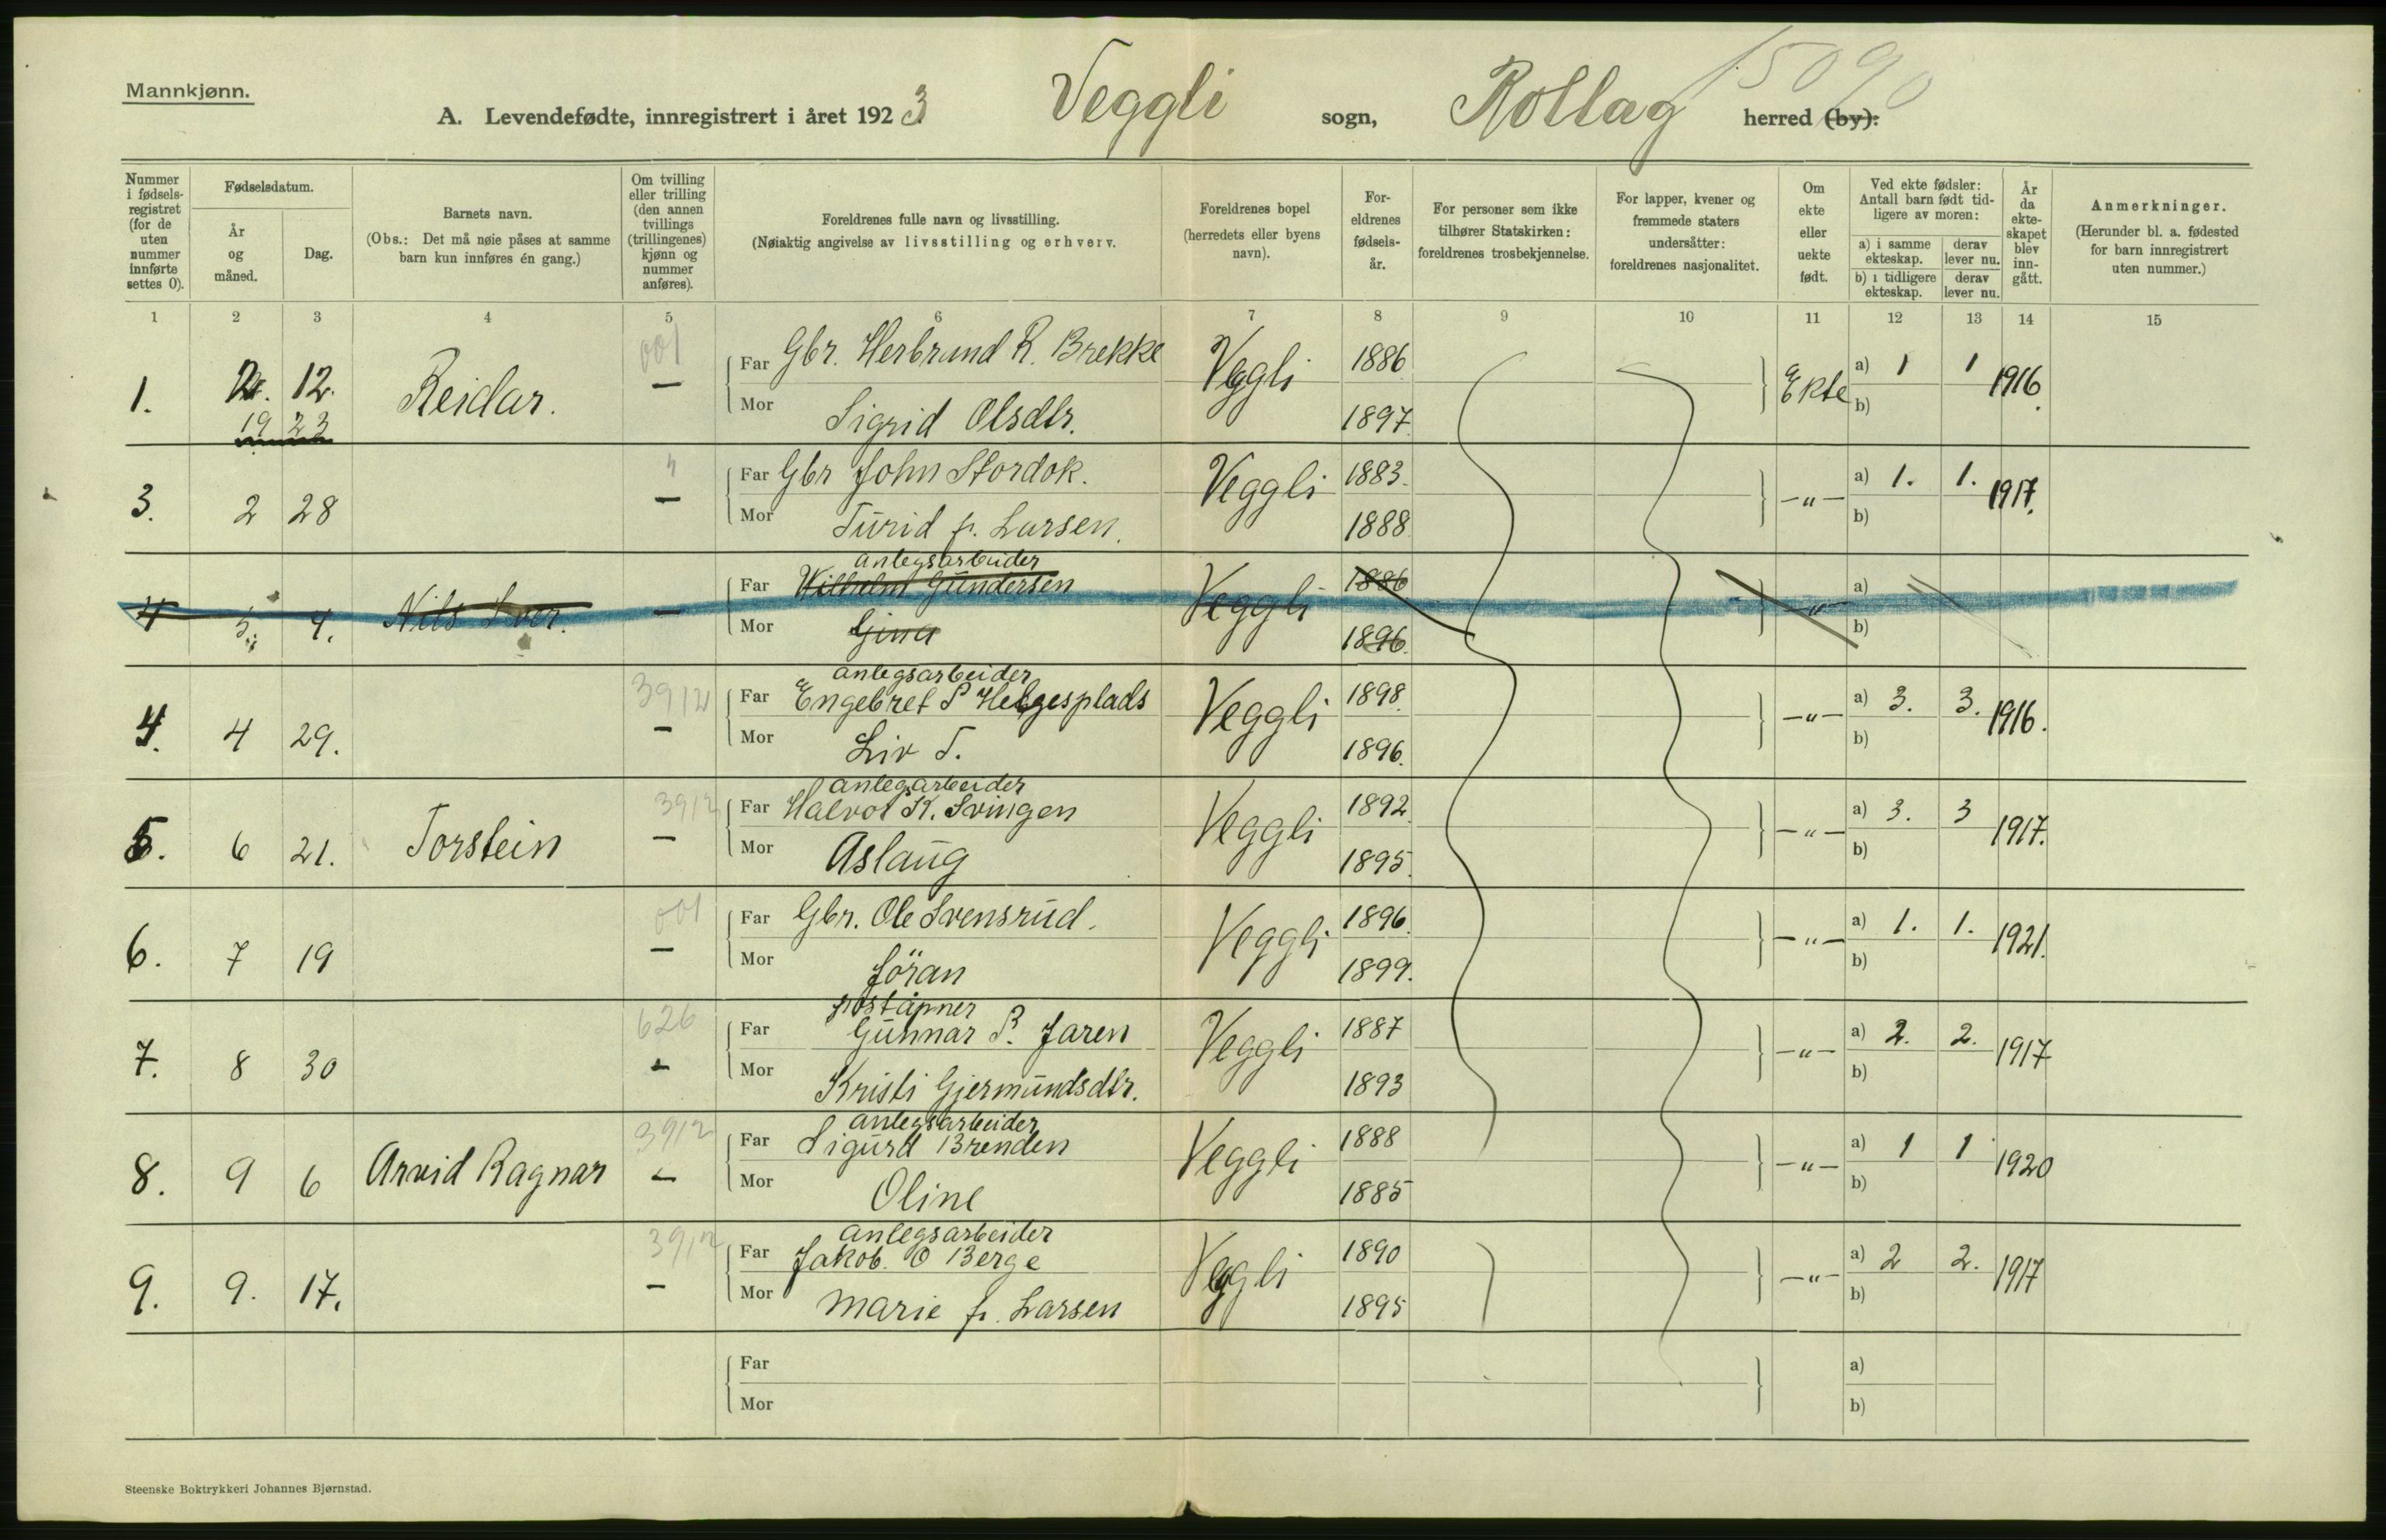 Mannkjønn.
A. Levendefødte, innregistrert i året 1923 Veggli sogn, Rollag herred (by):
Nummer i fødselsregistret (for de uten nummer innførte settes 0).
Fødselsdatum.
År og måned.
Dag.
Barnets navn.
(Obs.: Det må nøie påses at samme barn kun innføres én gang.)
Om tvilling eller trilling (den annen tvillings (trillingenes) kjønn og nummer anføres).
Foreldrenes fulle navn og livsstilling.
(Nøiaktig angivelse av livsstilling og erhverv.
Foreldrenes bopel (herredets eller byens navn).
Foreldrenes fødselsår.
For personer som ikke tilhører Statskirken: foreldrenes trosbekjennelse.
For lapper, kvener og fremmede staters undersåtter: foreldrenes nasjonalitet.
Om ekte eller uekte født.
Ved ekte fødsler: Antall barn født tidligere av moren:
a) i samme ekteskap. derav lever nu.
b) i tidligere ekteskap. derav lever nu.
År da ekteskapet blev inngått.
Anmerkninger.
(Herunder bl. a. fødested for barn innregistrert uten nummer.)
1 2 3 4 5 6 7 8 9 10 11 12 13 14 15
001
1. 2. 12. Reidar. — Far Gbr. Herbrand R. Brekke Veggli 1886 Ekte a) 1 1 1916.
19 23
Mor Sigrid Olsdtr. 1897 b)
3. 2 28 — Far Gbr John Stordok. Veggli 1883. —"— a) 1. 1. 1917.
Mor Turid f. Larsen. 1888 b)
anlegsarbeider
4 5. 4. Nils Iver. — Far Wilhelm Gundersen Veggli 1886 " a)
Mor Gina 1896. b)
3912 anlegsarbeider
4. 4 29. — Far Engebret S Helgesplads Veggli 1898. —"— a) 3. 3. 1916.
Mor Liv T. 1896. b)
3912 anlegsarbeider
5. 6 21. Torstein — Far Halvor K. Svingen Veggli 1892. —"— a) 3. 3 1917.
Mor Aslaug 1895. b)
001
6. 7 19 — Far Gbr. Ole Svensrud. Veggli 1896. —"— a) 1. 1. 1921.
Mor Jöran 1899. b)
626 poståpner
7. 8 30 — Far Gunnar S. Jaren Veggli 1887 —"— a) 2. 2. 1917
Mor Kristi Gjermundsdtr. 1893 b)
3912 anlegsarbeider
8. 9 6 Arvid Ragnar — Far Sigurd Brenden Veggli 1888 —"— a) 1 1 1920
Mor Oline 1885 b)
3912 anlegsarbeider
9. 9. 17. — Far Jakob. O Berge Veggli 1890 —"— a) 2 2. 1917
Mor Marie f. Larsen 1895 b)
Far a)
Mor b)
Steenske Boktrykkeri Johannes Bjørnstad.